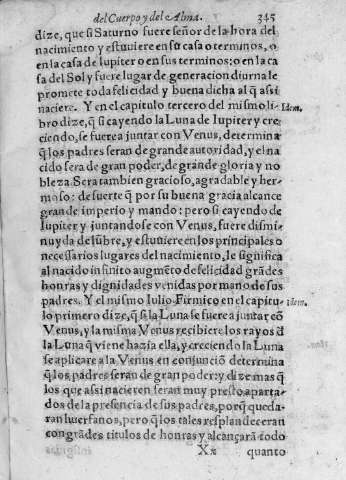 del Cuerpo y del Alma. 345
dize, que si Saturno fuere señor de la hora del
nacimiento y estuviere en su casa o terminos, o
en la casa de Iupiter o en sus terminos: o en la ca
sa del Sol y fuere lugar de generacion diurna le
promete toda felicidad y buena dicha al q̃ assi
naciere. Y en el capitulo tercero del mismo li-
bro dize, q̃ si cayendo la Luna de Iupiter y cre
ciendo, se fuere a juntar con Venus, determina
q̃ los padres seran de grande autoridad, y el na
cido sera de gran poder, de grande gloria y no
bleza. Sera tambien gracioso, agradable y her-
moso: de suerte q̃ por su buena gracia alcance
grande imperio y mando: pero si cayendo de
Iupiter y juntandose con Venus, fuere dismi-
nuyda de lũbre, y estuuiere en los principales o
necessarios lugares del nacimiento, le significa
al nacido infinito augmẽto de felicidad grãdes
honras y dignidades venidas por mano de sus
padres. Y el mismo Iulio Firmico en el capitu
lo primero dize, q̃ si la Luna se fuere a juntar cõ
Venus, y la misma Venus recibiere los rayos d̃
la Luna q̃ viene hazia ella, y creciendo la Luna
se aplicare a la Venus en conjunciõ determina
q̃ los padres seran de gran poder: y dize mas q̃
los que assi nacieren seran muy presto aparta-
dos de la presencia de sus padres, porq̃ queda-
ran huerfanos, pero q̃ los tales resplandeceran
con grãdes titulos de honras y alcançarã todo
Xx quanto
Idem.
Idem.